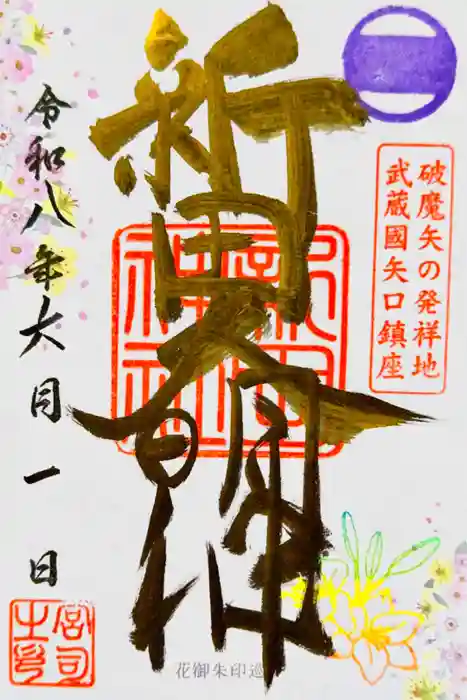 破魔矢の発祥地
武蔵國矢口鎮座
新田大明神
新田
神社
令和八年六月一日
宮司
之印
花御朱印巡